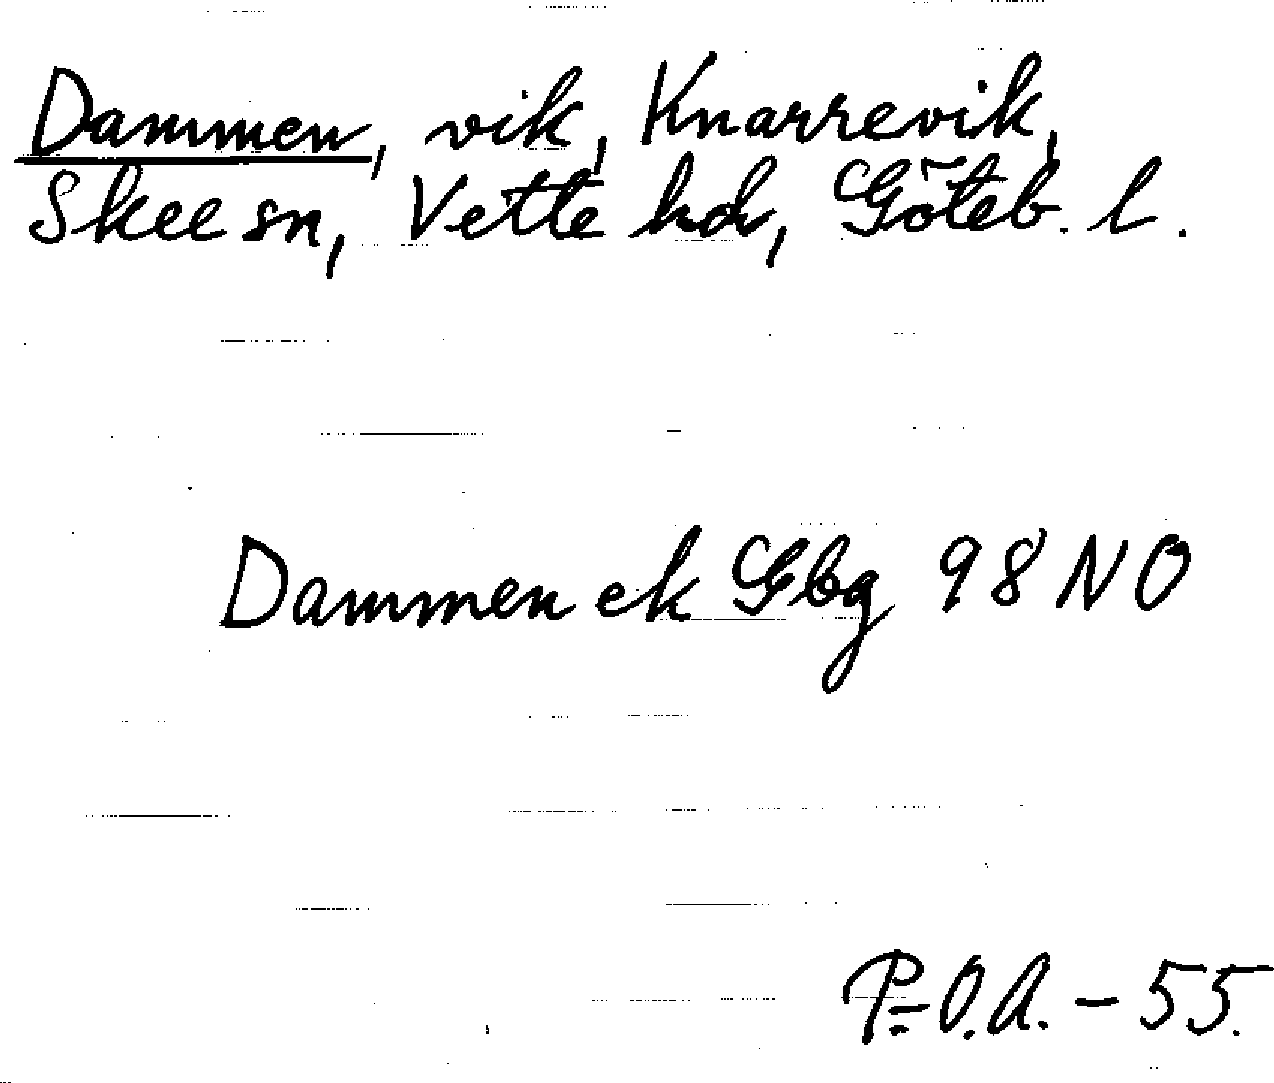 Dammen, vik, Knarrevik,
Skee sn, Vette hd, Göteb. l.
Dammen ek Gbg 98 NO
P-O.A. - 55.